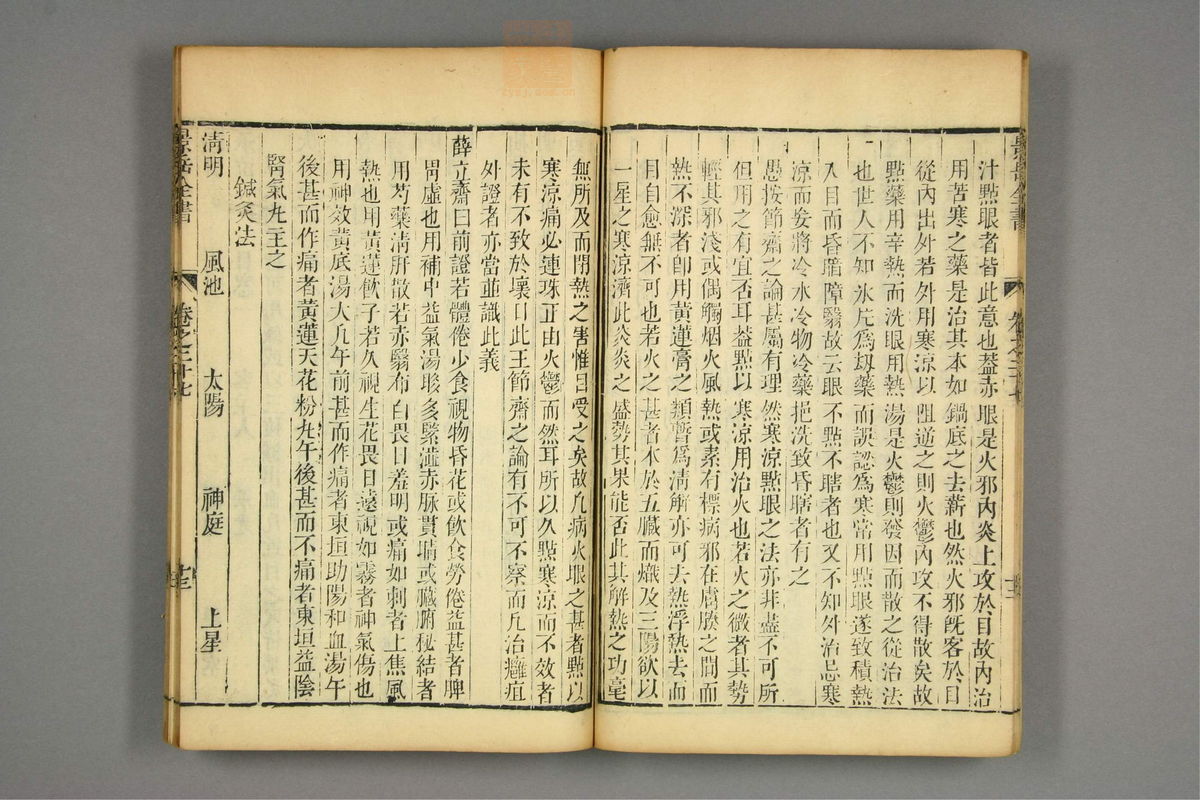 汁點眼者皆此意也葢赤眼是火邪內炎上攻於目故內治
用苦寒之藥是治其本如鍋底之去薪也然火邪旣客於目
從內出外若外用寒涼以阻逆之則火鬱內攻不得散矣故
點藥用辛熱而洗眼用熱湯是火鬱則發因而散之從治法
也世人不知氷片爲刼藥而誤認爲寒常用點眼遂致積熱
入目而昏暗障翳故云眼不點不瞎者也又不知外治忌寒
涼而妄將冷水冷物冷藥挹洗致昏瞎者有之
愚按節齋之論甚屬有理然寒涼點眼之法亦非盡不可所
但用之有宜否耳葢點以寒涼用治火也若火之微者其勢
輕其邪淺或偶觸烟火風熱或素有標病邪在膚腠之間而
熱不深者卽用黃連膏之類暫爲淸解亦可去熱浮熱去而
目自愈無不可也若火之甚者本於五臟而熾及三陽欲以
一星之寒涼濟此炎炎之盛勢其果能否此其解熱之功毫
無所及而閉熱之害惟目受之矣故凡病火眼之甚者點以
寒涼痛必連珠正由火鬱而然耳所以久點寒涼而不效者
未有不致於壞目此王節齋之論有不可不察而凡治癰疽
外證者亦當並識此義
薛立齋曰前證若體倦少食視物昏花或飮食勞倦益甚者脾
胃虛也用補中益氣湯眵多緊澁赤脉貫睛或臟腑秘結者
用芍藥淸肝散若赤翳布白畏日羞明或痛如刺者上焦風
熱也用黃連飮子若久視生花畏日遠視如霧者神氣傷也
用神效黃底湯大凡午前甚而作痛者東垣助陽和血湯午
後甚而作痛者黃連天花粉丸午後甚而不痛者東垣益陰
腎氣丸主之
鍼灸法
淸明 風池 太陽 神庭 上星
景岳全書 卷之二十七 十三